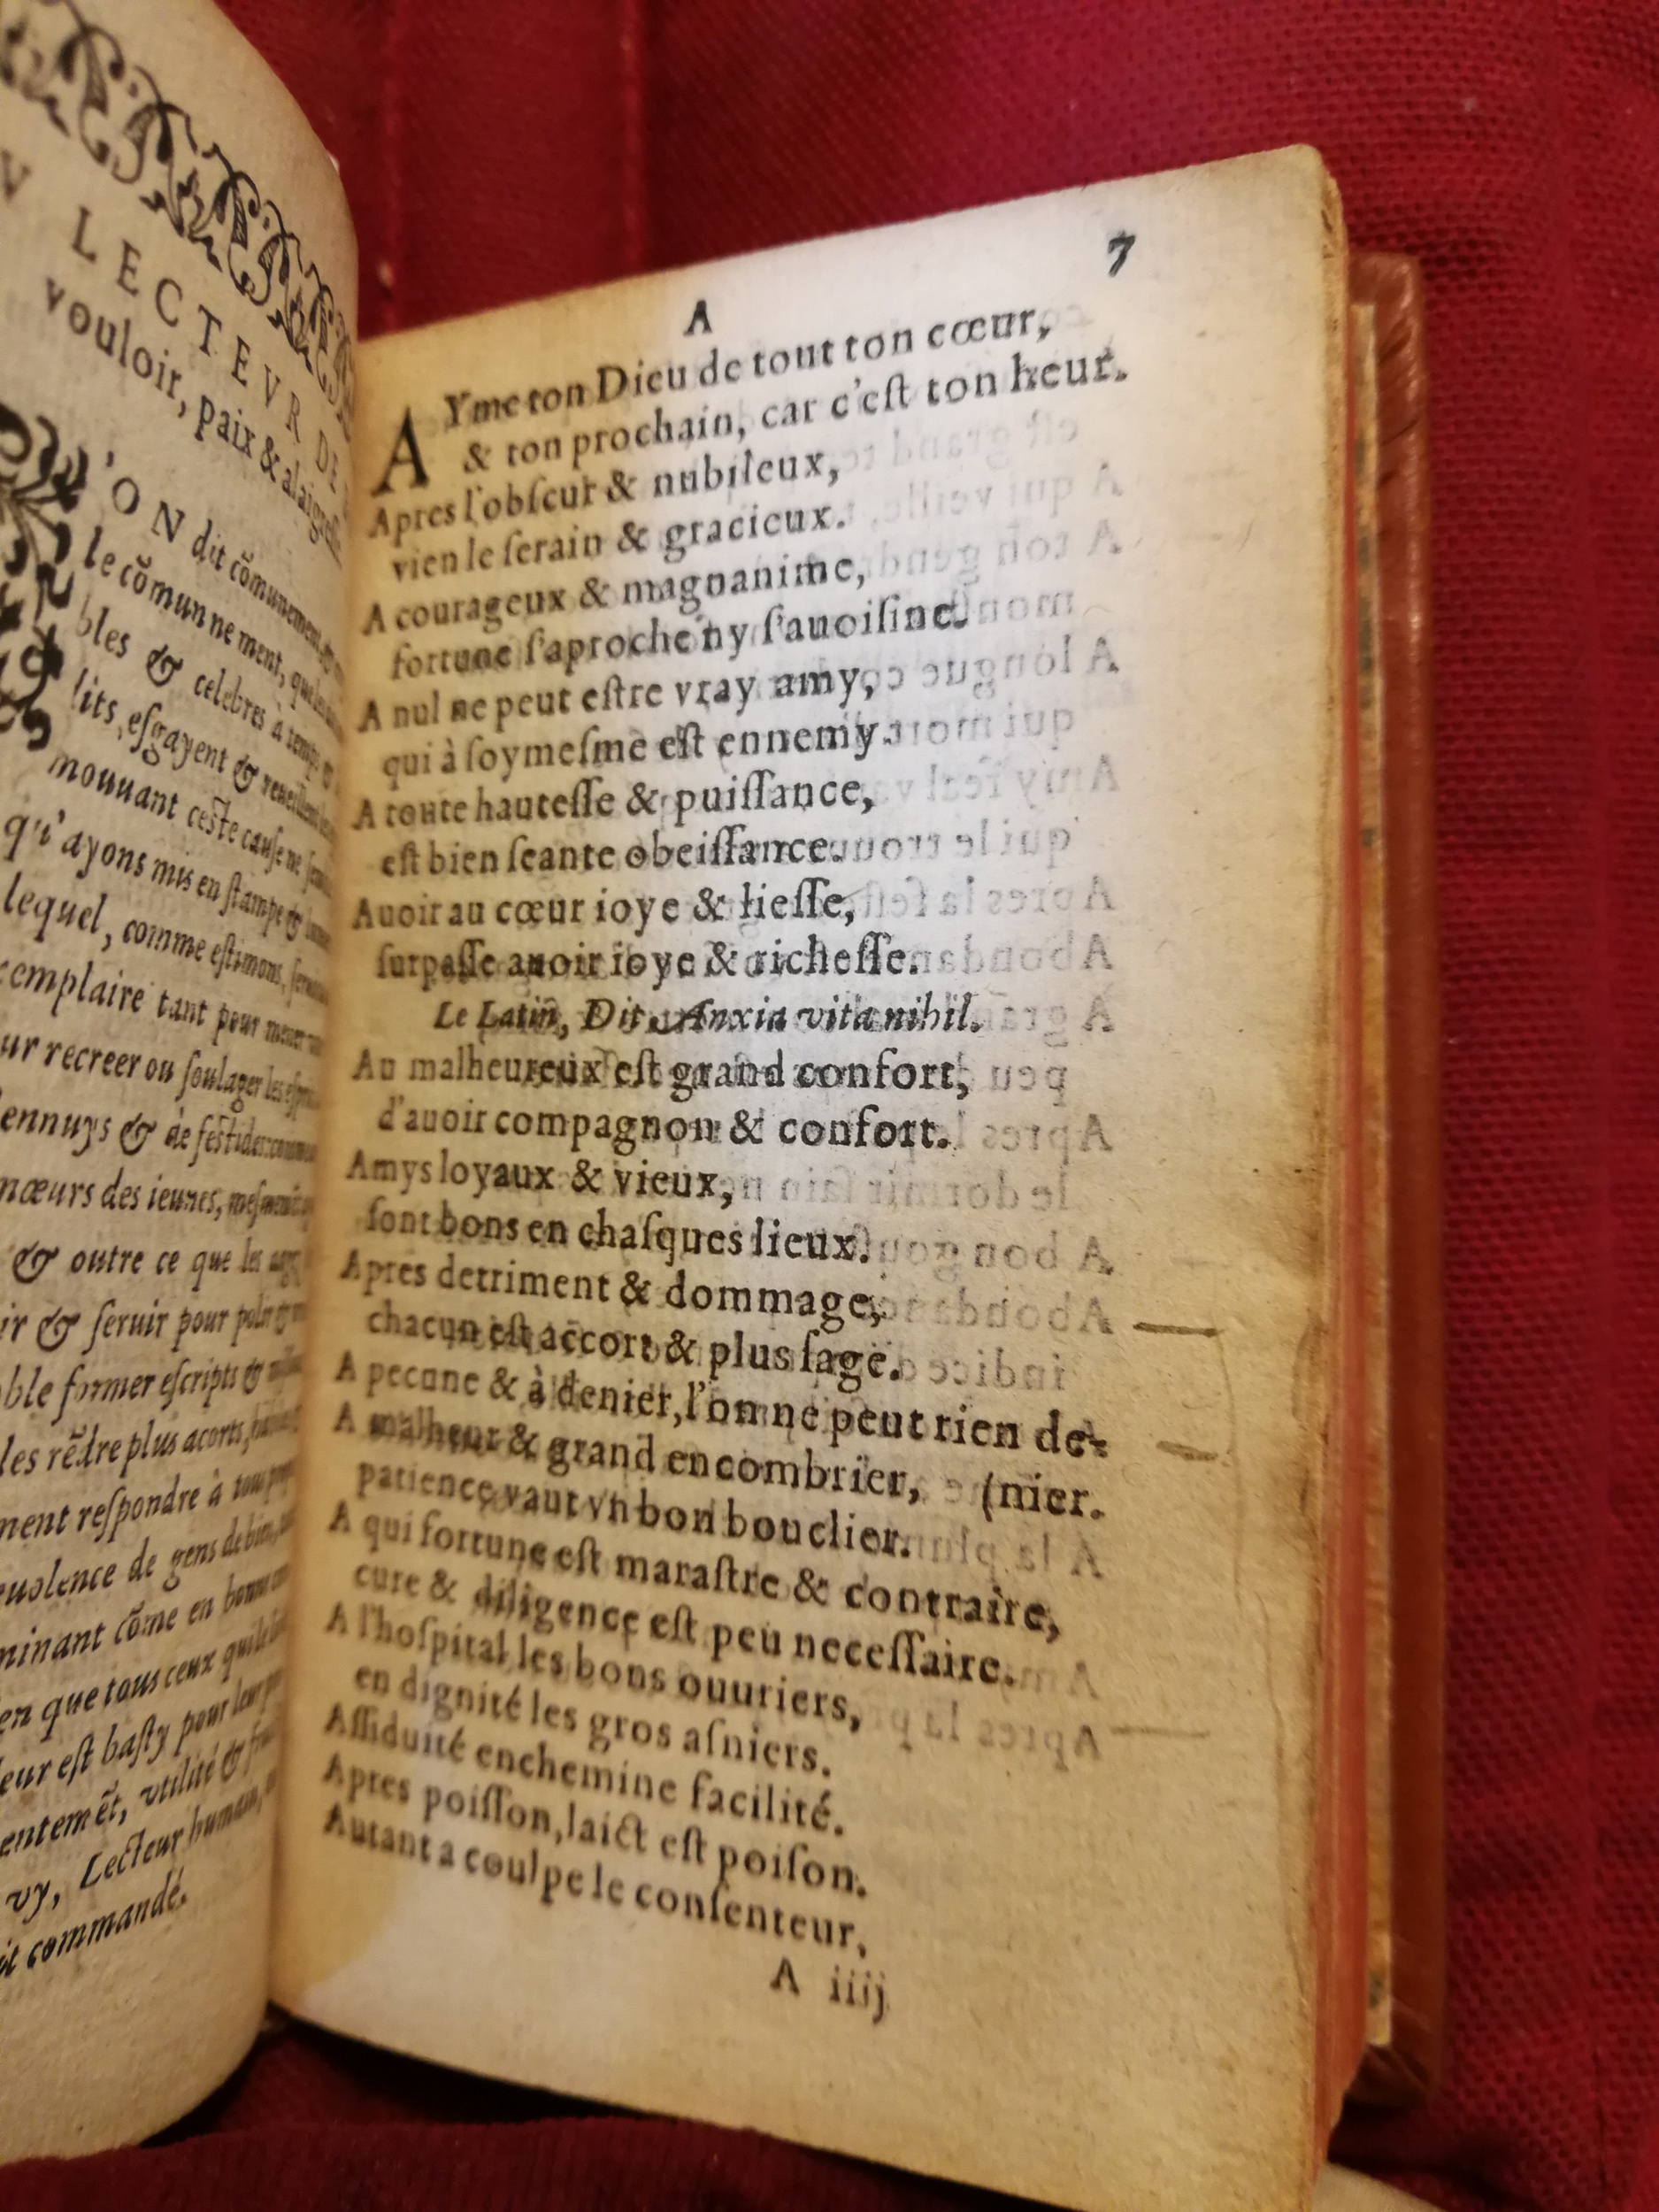 V LECTEVR DE
vouloir, paix & alaigresse
'ON dit cõmunement,
le cõmun ne ment,
bles & celebres à temps
lits, esgayent &
mouuant ceste cause ne
qu'ayons mis en stampe &
lequel, comme estimons,
emplaire tant pour mener
ur recreer ou soulager les
ennuys & de
mœurs des ieunes,
& outre ce que les
ir & seruir pour polir
ble former escripts &
les rẽdre plus acorts,
ment respondre à tous
uolence de gens de bien,
minant cõme en bonne
en que tous ceux qui
eur est basty pour leur
entemẽt, vtilité &
vy, Lecteur humain,
it commandé.
7
A
AYme ton Dieu de tout ton cœur,
& ton prochain, car c'est ton heur.
Apres l'obſcur & nubileux,
vien le ſerain & gracieux.
A courageux & magnanime,
fortune ſ'aproche ny ſ'auoiſine.
A nul ne peut eſtre vray amy,
qui à ſoymeſme eſt ennemy.
A toute hauteſſe & puiſſance,
eſt bien ſeante obeiſſance.
Auoir au cœur ioye & lieſſe,
ſurpaſſe auoir ioye & richeſſe.
Le Latin, Dit. Anxia vita nihil.
Au malheureux eſt grand confort,
d'auoir compagnon & confort.
Amys loyaux & vieux,
ſont bons en chaſques lieux.
Apres detriment & dommage,
chacun eſt accort & plus ſage.
A pecune & à denier, l'on ne peut rien de-
A malheur & grand encombrier, (nier.
patience vaut vn bon bouclier.
A qui fortune eſt maraſtre & contraire,
cure & diligence eſt peu neceſſaire.
A l'hoſpital les bons ouuriers,
en dignité les gros aſniers.
Aſſiduité enchemine facilité.
Apres poiſſon, laict eſt poiſon.
Autant a coulpe le conſenteur,
A iiij